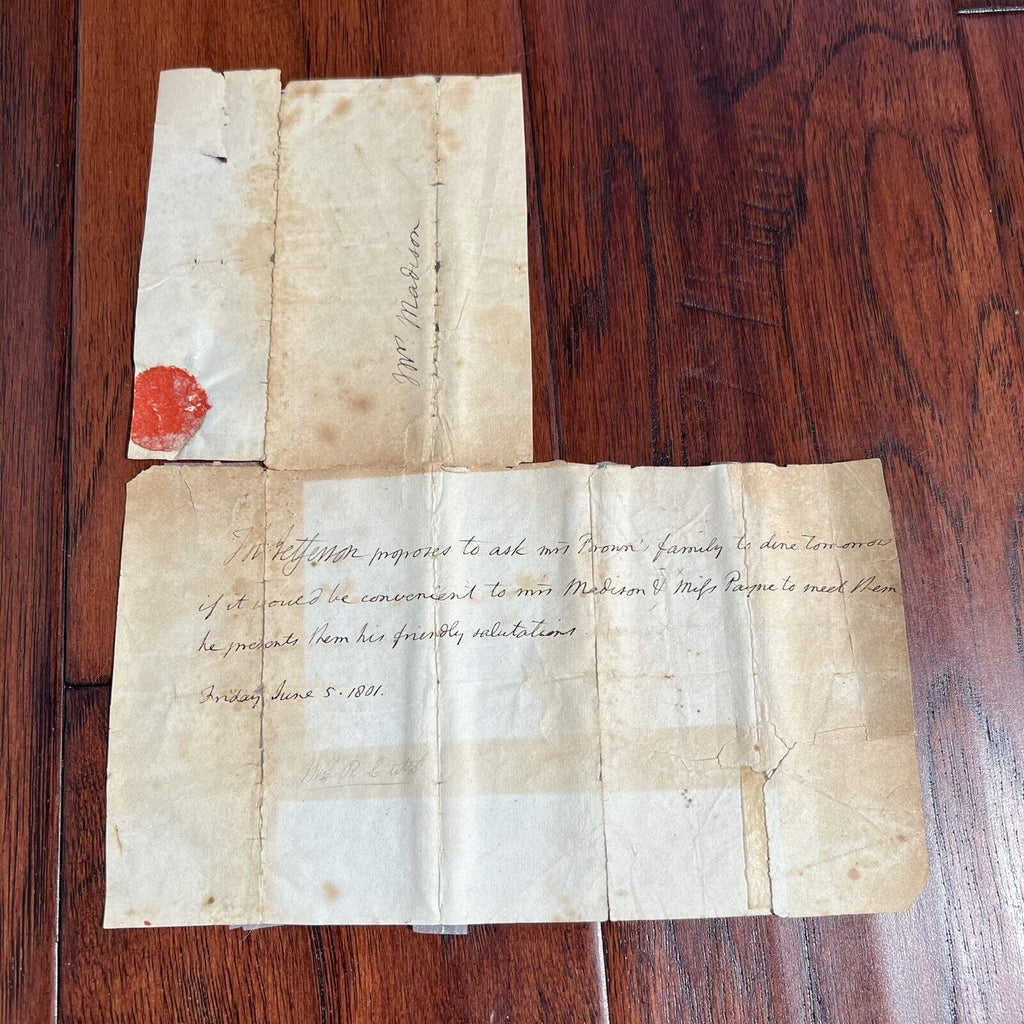 Mrs Madison
Th: Jefferson proposes to ask mrs Brown's family to dine tomorrow
if it would be convenient to mrs Madison & Miss Payne to meet them
he presents them his friendly salutations.
Friday June 5. 1801.